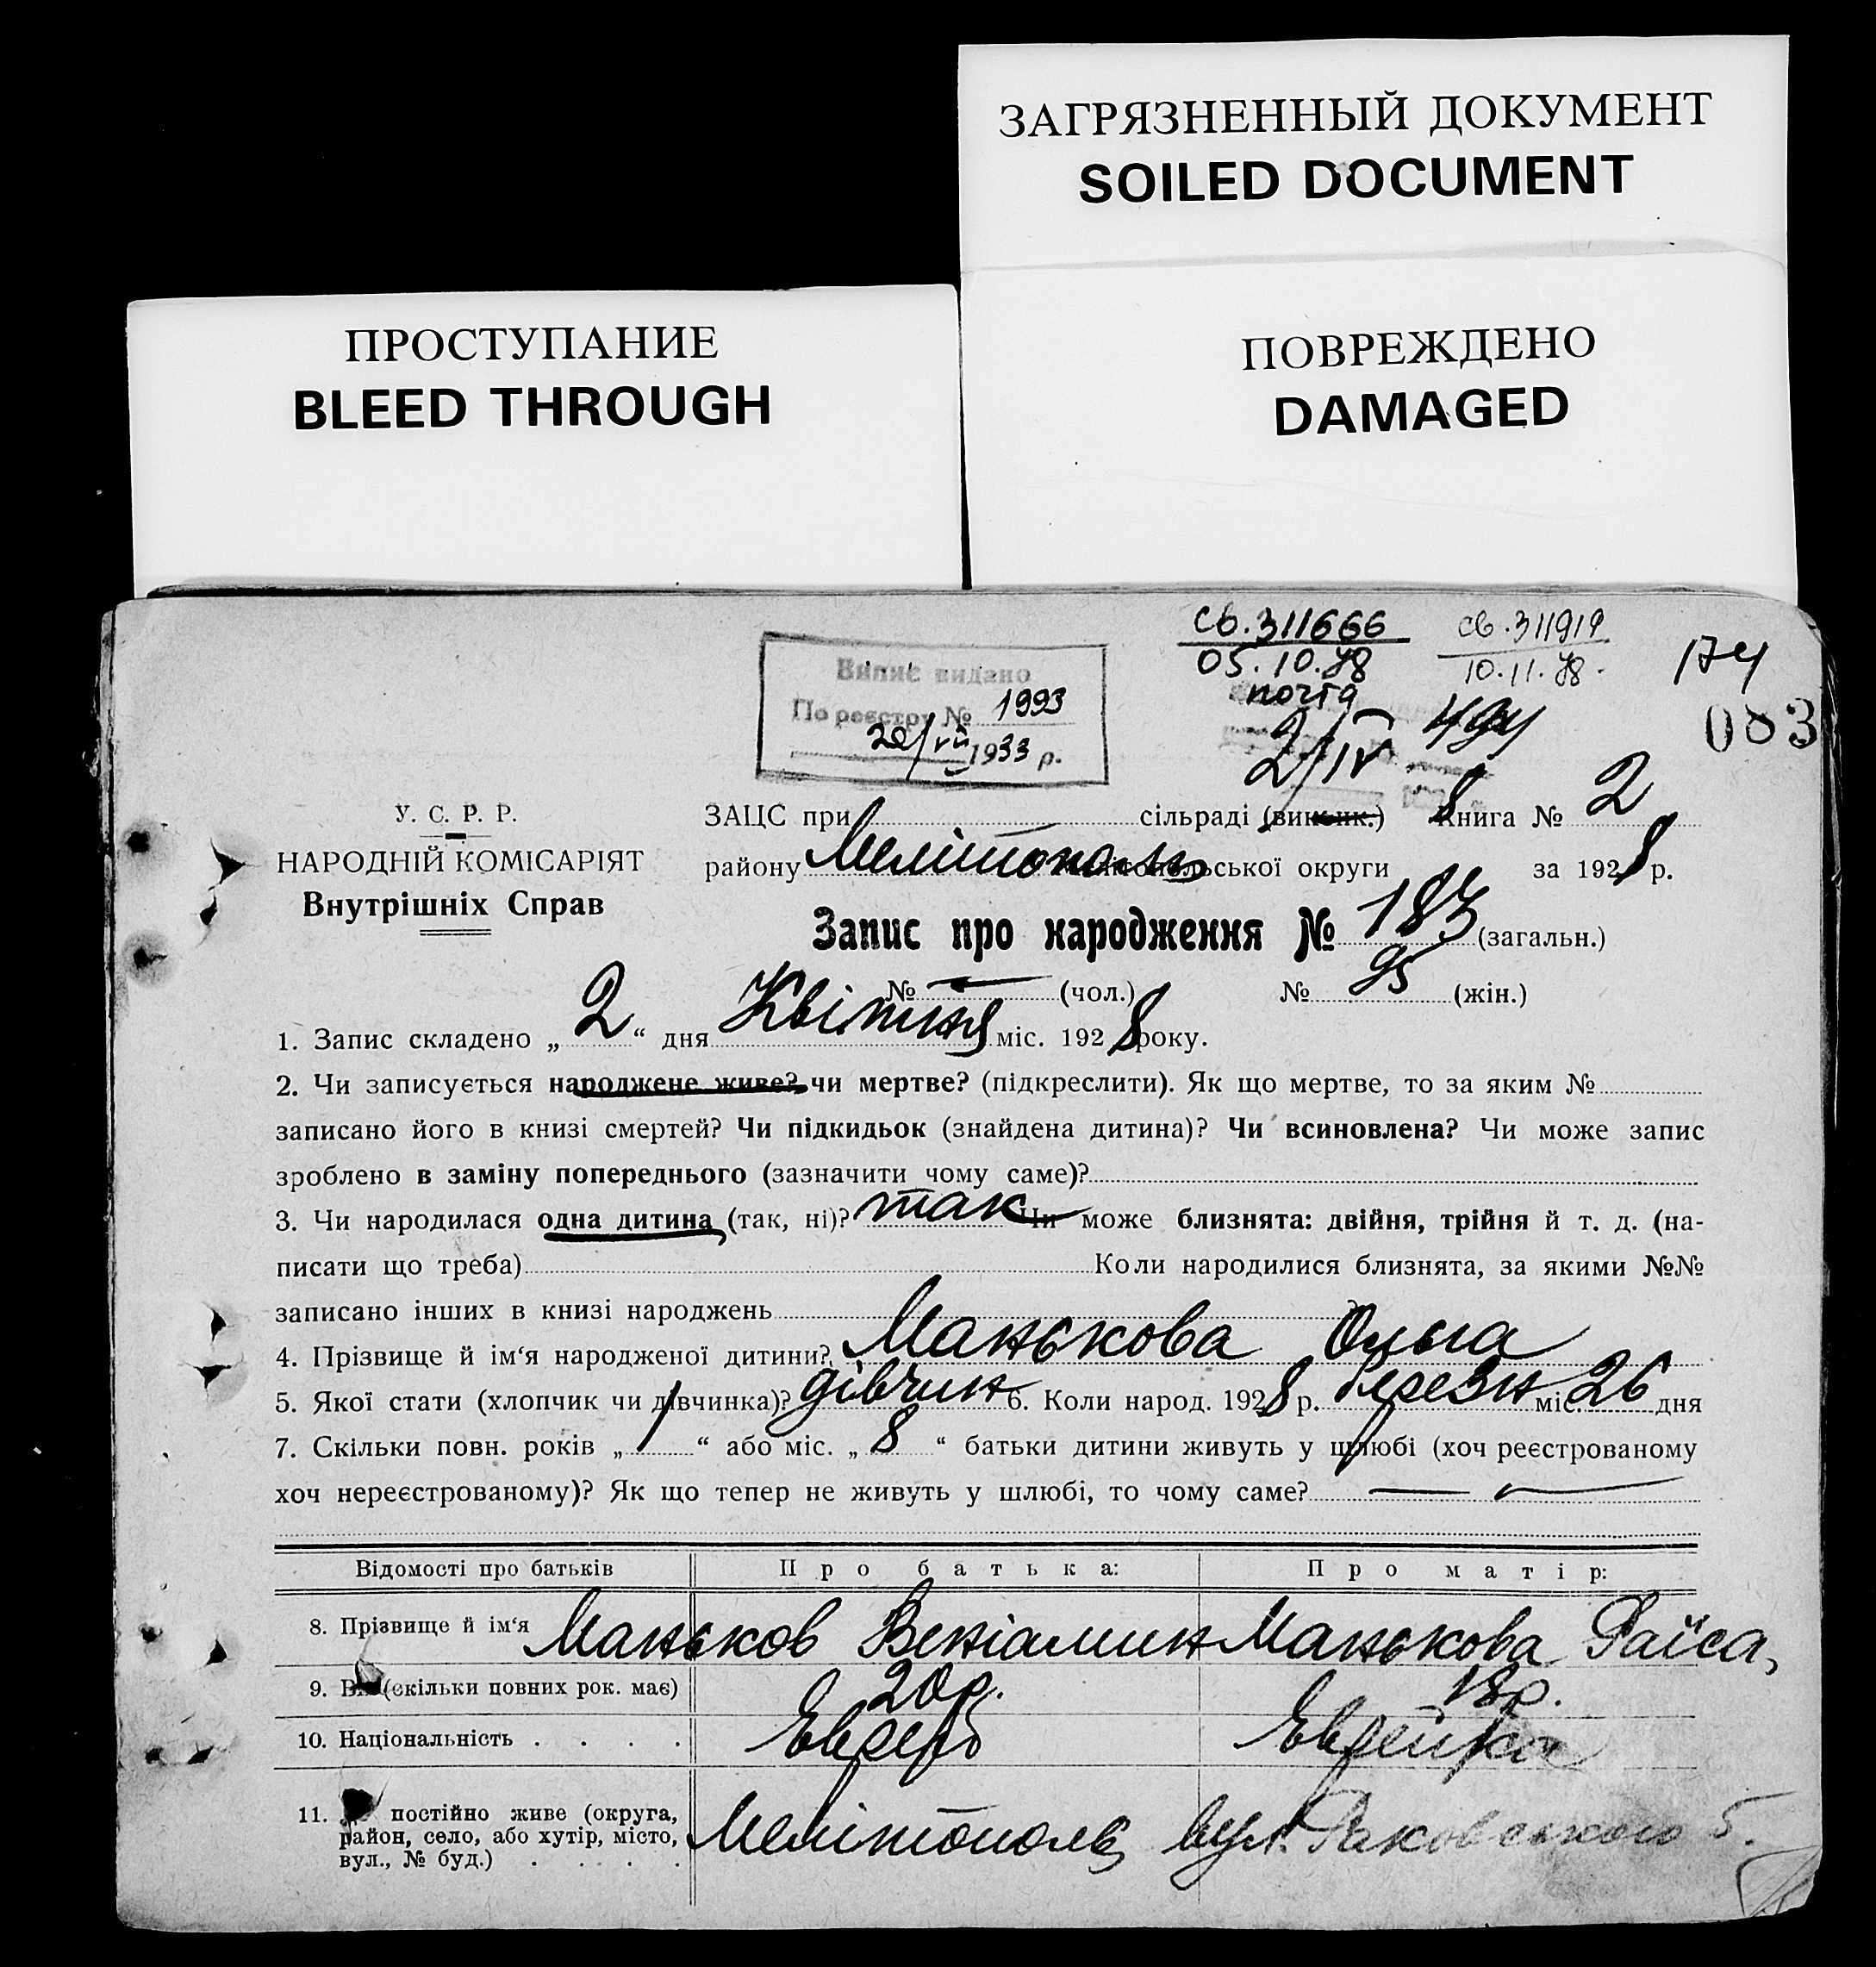 ЗАГРЯЗНЕННЫЙ ДОКУМЕНТ
SOILED DOCUMENT
ПРОСТУПАНИЕ
BLEED THROUGH
ПОВРЕЖДЕНО
DAMAGED
св. 311666
05.10.78
почта
св. 311919
10.11.78.
174
083
Випис видано
По реєстру № 1993
20/VII 1933 р.
2/IV 494
У. С. Р. Р.
НАРОДНІЙ КОМІСАРІЯТ
Внутрішніх Справ
ЗАЦС при сільраді (виквик.) Книга № 2
району Мелітополь Мелітопольської округи за 1928 р.
Запис про народження № 183 (загальн.)
№ — (чол.) № 95 (жін.)
1. Запис складено „ 2 “ дня Квітня міс. 1928 року.
2. Чи записується народжене живе? чи мертве? (підкреслити). Як що мертве, то за яким №
записано його в книзі смертей? Чи підкидьок (знайдена дитина)? Чи всиновлена? Чи може запис
зроблено в заміну попереднього (зазначити чому саме)?
3. Чи народилася одна дитина (так, ні)? так Чи може близнята: двійня, трійня й т. д. (на-
писати що треба) Коли народилися близнята, за якими №№
записано інших в книзі народжень
4. Прізвище й ім‘я народженої дитини? Манькова Ольга
5. Якої стати (хлопчик чи дівчинка)? дівчин 6. Коли народ. 1928 р. березн міс. 26 дня
7. Скільки повн. років „ 1 “ або міс. „ 8 “ батьки дитини живуть у шлюбі (хоч реєстрованому
хоч нереєстрованому)? Як що тепер не живуть у шлюбі, то чому саме? —
Відомості про батьків Про батька: Про матір:
8. Прізвище й ім‘я Маньков Веніамин Манькова Раїса,
9. Вік (скільки повних рок. має) 20р. 18р.
10. Національність . . . . Еврей Еврейка
11. постійно живе (округа,
район, село, або хутір, місто,
вул., № буд.) . . . . Мелітополь вул. Раковського 5.